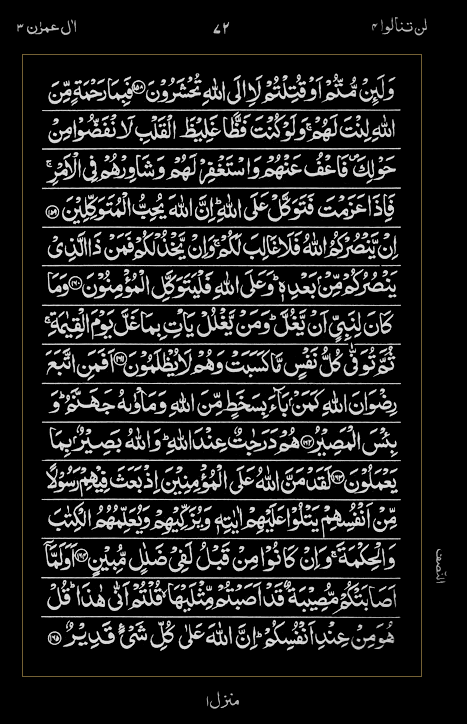 اٰل عمرٰن ۳ ۷۲ لن تنالوا ۴
وَلَئِنْ مُّتُّمْ اَوْ قُتِلْتُمْ لَاِالَى اللّٰهِ تُحْشَرُوْنَ ﴿۱۵۸﴾ فَبِمَا رَحْمَةٍ مِّنَ
اللّٰهِ لِنْتَ لَهُمْ ۚ وَلَوْ كُنْتَ فَظًّا غَلِيْظَ الْقَلْبِ لَانْفَضُّوْا مِنْ
حَوْلِكَ ۪ فَاعْفُ عَنْهُمْ وَاسْتَغْفِرْ لَهُمْ وَشَاوِرْهُمْ فِى الْاَمْرِ ۚ
فَاِذَا عَزَمْتَ فَتَوَكَّلْ عَلَى اللّٰهِ ؕ اِنَّ اللّٰهَ يُحِبُّ الْمُتَوَكِّلِيْنَ ﴿۱۵۹﴾
اِنْ يَّنْصُرْكُمُ اللّٰهُ فَلَا غَالِبَ لَكُمْ ۚ وَاِنْ يَّخْذُلْكُمْ فَمَنْ ذَا الَّذِىْ
يَنْصُرُكُمْ مِّنْۢ بَعْدِهٖ ؕ وَعَلَى اللّٰهِ فَلْيَتَوَكَّلِ الْمُؤْمِنُوْنَ ﴿۱۶۰﴾ وَمَا
كَانَ لِنَبِىٍّ اَنْ يَّغُلَّ ؕ وَمَنْ يَّغْلُلْ يَاْتِ بِمَا غَلَّ يَوْمَ الْقِيٰمَةِ ۚ
ثُمَّ تُوَفّٰى كُلُّ نَفْسٍ مَّا كَسَبَتْ وَهُمْ لَا يُظْلَمُوْنَ ﴿۱۶۱﴾ اَفَمَنِ اتَّبَعَ
رِضْوَانَ اللّٰهِ كَمَنْۢ بَآءَ بِسَخَطٍ مِّنَ اللّٰهِ وَمَاْوٰىهُ جَهَنَّمُ ؕ وَ
بِئْسَ الْمَصِيْرُ ﴿۱۶۲﴾ هُمْ دَرَجٰتٌ عِنْدَ اللّٰهِ ؕ وَاللّٰهُ بَصِيْرٌۢ بِمَا
يَعْمَلُوْنَ ﴿۱۶۳﴾ لَقَدْ مَنَّ اللّٰهُ عَلَى الْمُؤْمِنِيْنَ اِذْ بَعَثَ فِيْهِمْ رَسُوْلًا
مِّنْ اَنْفُسِهِمْ يَتْلُوْا عَلَيْهِمْ اٰيٰتِهٖ وَيُزَكِّيْهِمْ وَيُعَلِّمُهُمُ الْكِتٰبَ
وَالْحِكْمَةَ ۚ وَاِنْ كَانُوْا مِنْ قَبْلُ لَفِىْ ضَلٰلٍ مُّبِيْنٍ ﴿۱۶۴﴾ اَوَلَمَّآ
اَصَابَتْكُمْ مُّصِيْبَةٌ قَدْ اَصَبْتُمْ مِّثْلَيْهَا ۙ قُلْتُمْ اَنّٰى هٰذَا ؕ قُلْ
هُوَ مِنْ عِنْدِ اَنْفُسِكُمْ ؕ اِنَّ اللّٰهَ عَلٰى كُلِّ شَىْءٍ قَدِيْرٌ ﴿۱۶۵﴾
النصف
منزل ۱